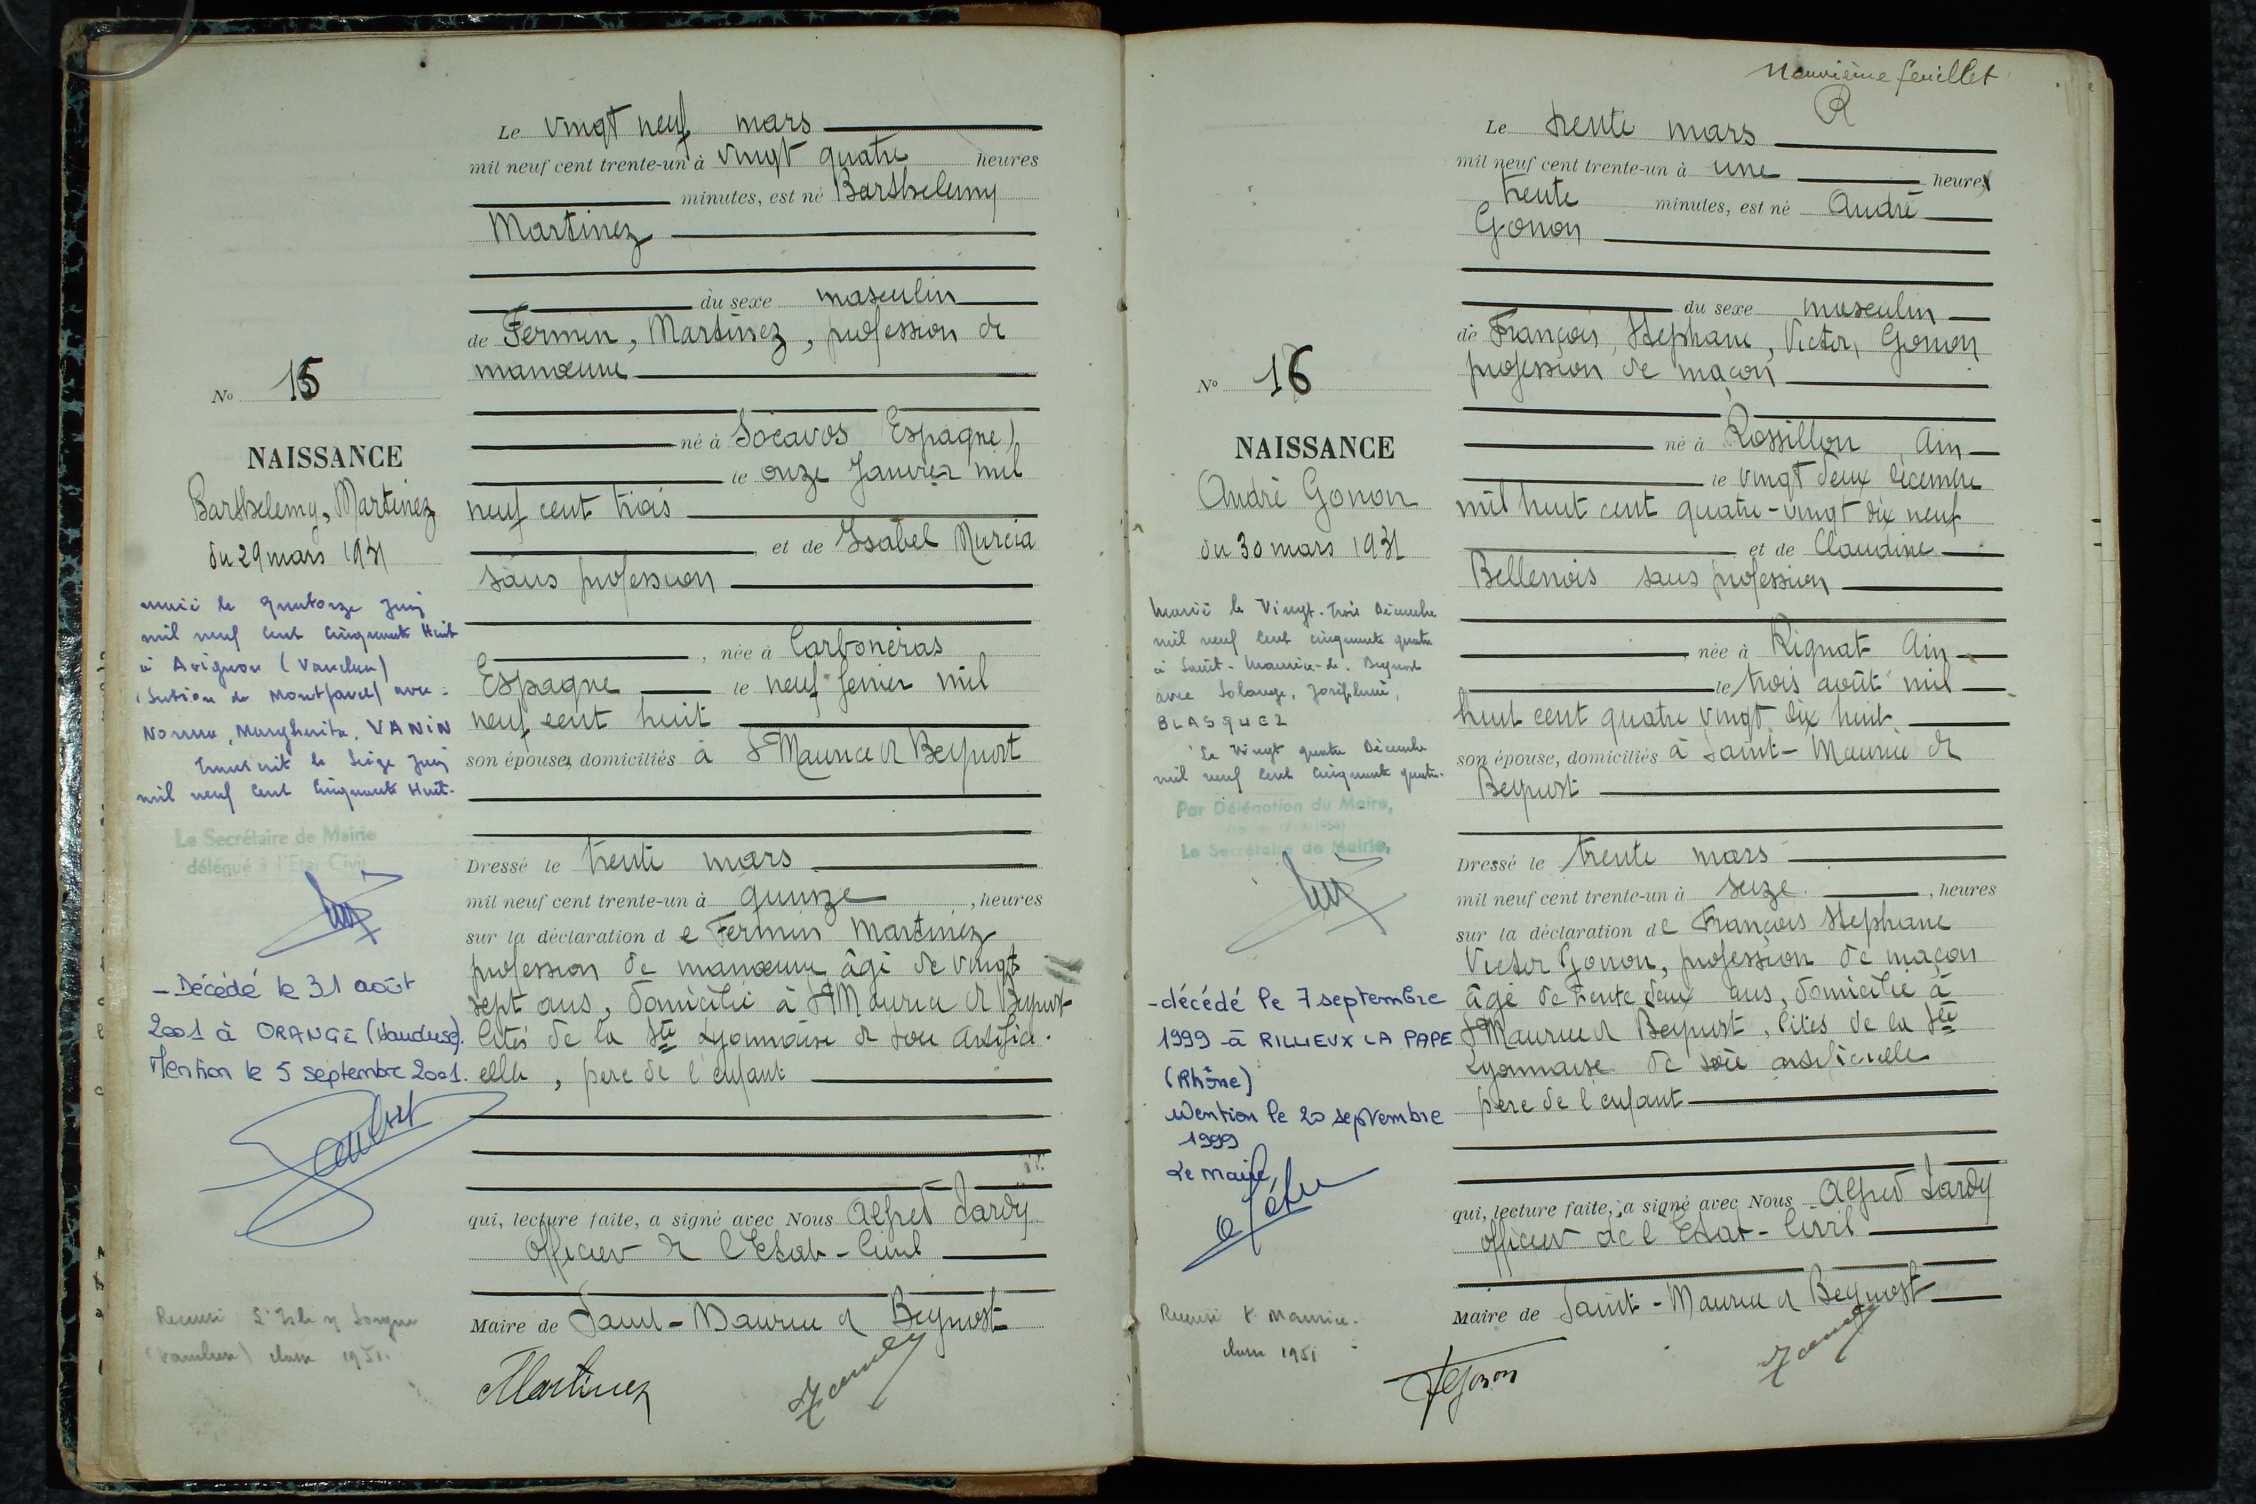 Le vingt neuf mars
mil neuf cent trente-un à vingt quatre heures
minutes, est né Barthelemy
Martinez
du sexe masculin
de Fermin, Martinez, profession de
manœuvre
né à Socavos Espagne)
le onze Janvier mil
neuf cent trois
et de Isabel Murcia
sans profession
, née à Carboneras
Espagne le neuf fevrier mil
neuf cent huit
son épouse, domiciliés à St Maurice de Beynost
Dressé le trente mars
mil neuf cent trente-un à quinze , heures
sur la déclaration de Fermin Martinez
profession de manœuvre âgé de vingt
sept ans, domicilié à St Maurice de Beynost
Cités de la Sté Lyonnaise de Soie Artifici-
elle, père de l'enfant
qui, lecture faite, a signé avec Nous Alfred Jardy
Officier de l'Etat-Civil
Maire de Saint-Maurice de Beynost
Martinez
No 15
NAISSANCE
Barthelemy, Martinez
du 29 mars 1931
marié le quatorze Juin
mil neuf cent cinquante Huit
à Avignon (Vaucluse)
(Section de Montfavet) avec
Norma, Margherita, VANIN
Transcrit le Seize Juin
mil neuf cent cinquante Huit.
Le Secrétaire de Mairie
délégué à l'Etat Civil
- Décédé le 31 août
2001 à ORANGE (Vaucluse).
Mention le 5 septembre 2001.
Recensé L'Isle s/ Sorgue
(Vaucluse) classe 1951.
Neuvième feuillet
R
Le trente mars
mil neuf cent trente-un à une heure
trente minutes, est né André
Gonon
du sexe masculin
de François, Stephane, Victor, Gonon
profession de maçon
né à Rossillon Ain
le vingt deux décembre
mil huit cent quatre-vingt dix neuf
et de Claudine
Bellenois sans profession
née à Rignat Ain
le trois août mil
huit cent quatre vingt dix huit
son épouse, domiciliés à Saint-Maurice de
Beynost
Dressé le trente mars
mil neuf cent trente-un à seize , heures
sur la déclaration de François Stephane
Victor Gonon, profession de maçon
âgé de trente deux ans, domicilié à
St Maurice de Beynost, Cités de la Sté
Lyonnaise de soie artificielle
père de l'enfant
qui, lecture faite, a signé avec Nous Alfred Jardy
officier de l'Etat-Civil
Maire de Saint-Maurice de Beynost
Gonon
No 16
NAISSANCE
André Gonon
du 30 mars 1931
Marié le Vingt-trois Décembre
mil neuf cent cinquante quatre
à Saint-Maurice-de-Beynost
avec Solange, Joséphine,
BLASQUEZ
Le Vingt quatre Décembre
mil neuf cent cinquante quatre.
Par Délégation du Maire,
Le Secrétaire de Mairie,
- décédé le 7 septembre
1999 à RILLIEUX LA PAPE
(Rhône)
Mention le 20 septembre
1999
Le Maire
Recensé St Maurice.
classe 1951